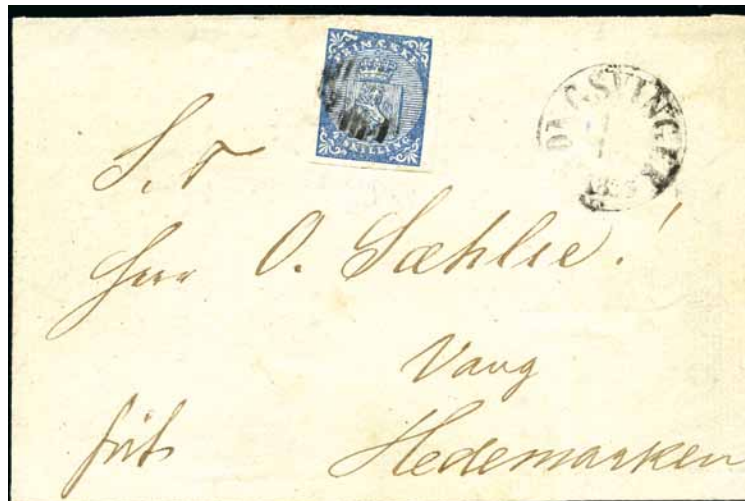 FRIMÆRKE
4 SKILLING
S. T.
Herr O. Sæhlie!
Vang
frit
Hedemarken